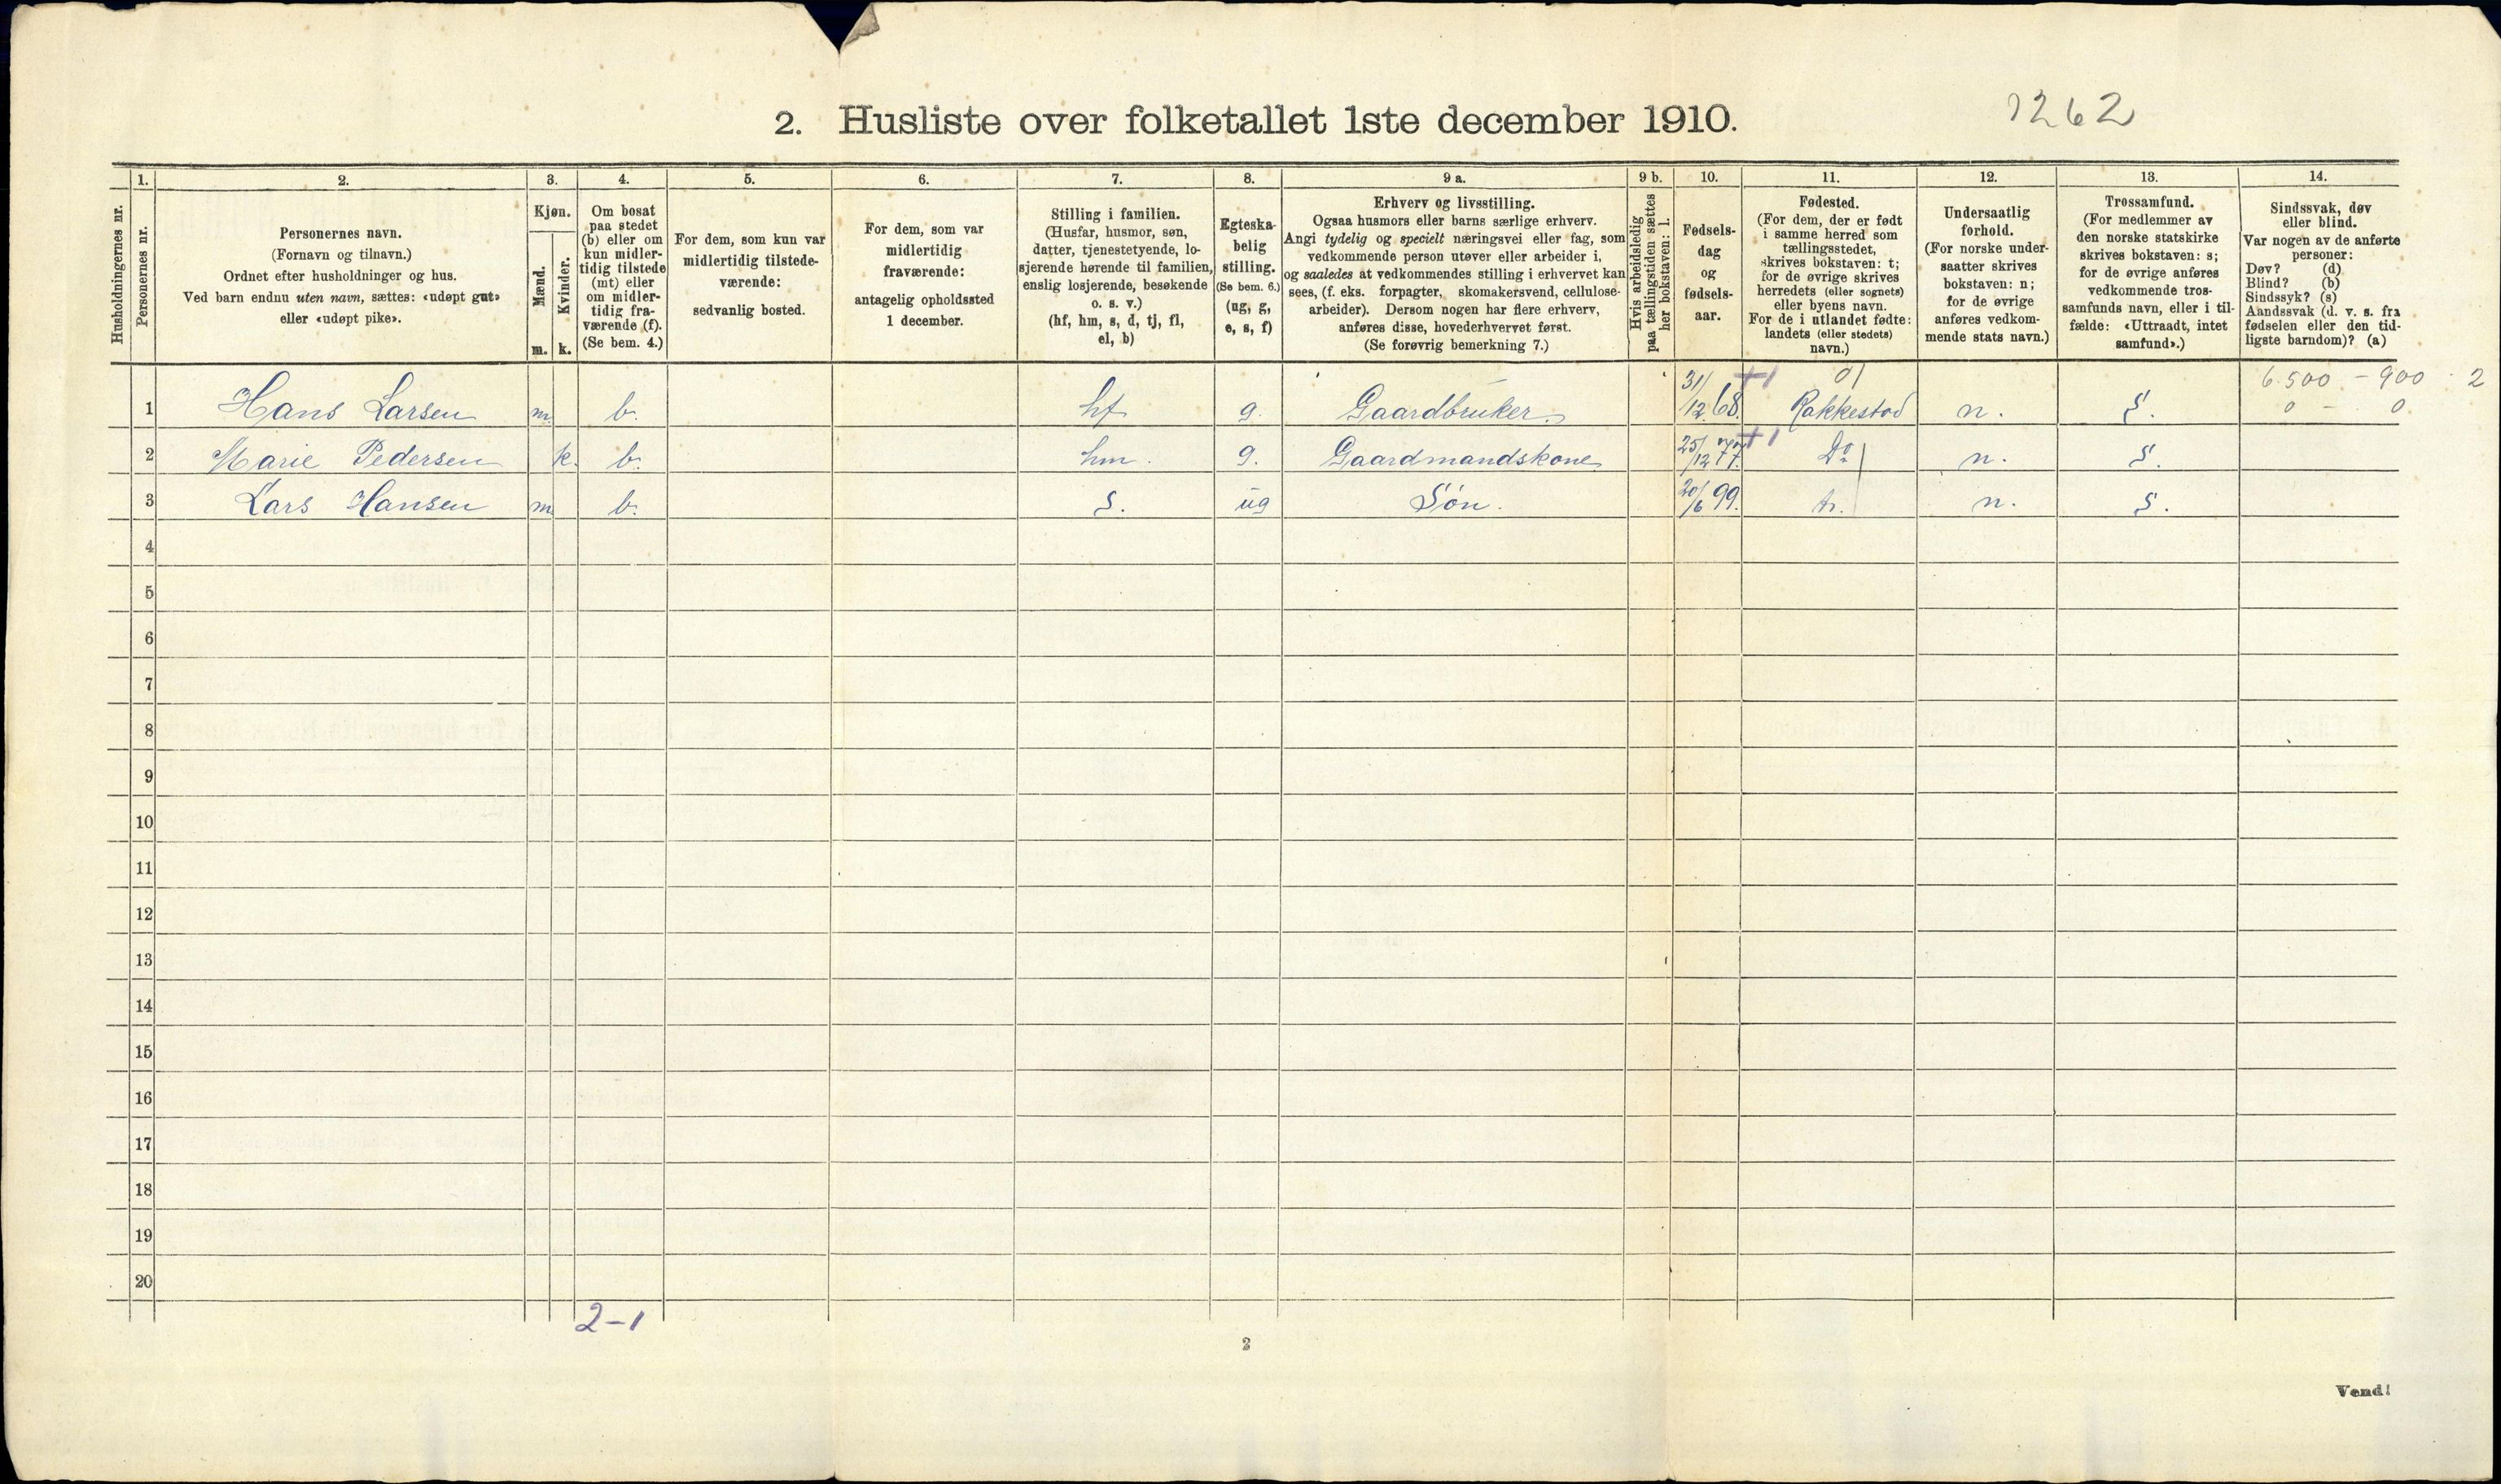 2. Husliste over folketallet 1ste december 1910.
1262
Husholdningernes nr.
1.
Personernes nr.
2.
Personernes navn.
(Fornavn og tilnavn.)
Ordnet efter husholdninger og hus.
Ved barn endnu uten navn, sættes: «udøpt gut»
eller «udøpt pike».
3.
Kjøn.
Mænd.
Kvinder.
m. k.
4.
Om bosat
paa stedet
(b) eller om
kun midler-
tidig tilstede
(mt) eller
om midler-
tidig fra-
værende (f).
(Se bem. 4.)
5.
For dem, som kun var
midlertidig tilstede-
værende:
sedvanlig bosted.
6.
For dem, som var
midlertidig
fraværende:
antagelig opholdssted
1 december.
7.
Stilling i familien.
(Husfar, husmor, søn,
datter, tjenestetyende, lo-
sjerende hørende til familien,
enslig losjerende, besøkende
o. s. v.)
(hf, hm, s, d, tj, fl,
el, b)
8.
Egteska-
belig
stilling.
(Se bem. 6.)
(ug, g,
e, s, f)
9 a.
Erhverv og livsstilling.
Ogsaa husmors eller barns særlige erhverv.
Angi tydelig og specielt næringsvei eller fag, som
vedkommende person utøver eller arbeider i,
og saaledes at vedkommendes stilling i erhvervet kan
sees, (f. eks. forpagter, skomakersvend, cellulose-
arbeider). Dersom nogen har flere erhverv,
anføres disse, hovederhvervet først.
(Se forøvrig bemerkning 7.)
9 b.
Hvis arbeidsledig
paa tællingstiden sættes
her bokstaven: l.
10.
Fødsels-
dag
og
fødsels-
aar.
11.
Fødested.
(For dem, der er født
i samme herred som
tællingsstedet,
skrives bokstaven: t;
for de øvrige skrives
herredets (eller sognets)
eller byens navn.
For de i utlandet fødte:
landets (eller stedets)
navn.)
12.
Undersaatlig
forhold.
(For norske under-
saatter skrives
bokstaven: n;
for de øvrige
anføres vedkom-
mende stats navn.)
13.
Trossamfund.
(For medlemmer av
den norske statskirke
skrives bokstaven: s;
for de øvrige anføres
vedkommende tros-
samfunds navn, eller i til-
fælde: «Uttraadt, intet
samfund».)
14.
Sindssvak, døv
eller blind.
Var nogen av de anførte
personer:
Døv? (d)
Blind? (b)
Sindssyk? (s)
Aandssvak (d. v. s. fra
fødselen eller den tid-
ligste barndom)? (a)
01 6.500 - 900 . 2
1 Hans Larsen m. b. hf g. Gaardbruker. 31/12 68. +1 Rakkestad n. S. 0 - 0
2 Marie Pedersen k. b. hm. g. Gaardmandskone 25/12 77. +1 Do n. S.
3 Lars Hansen m b. S. ug Søn. 20/6 99. t. n. S.
4
5
6
7
8
9
10
11
12
13
14
15
16
17
18
19
20
2-1
2
Vend!